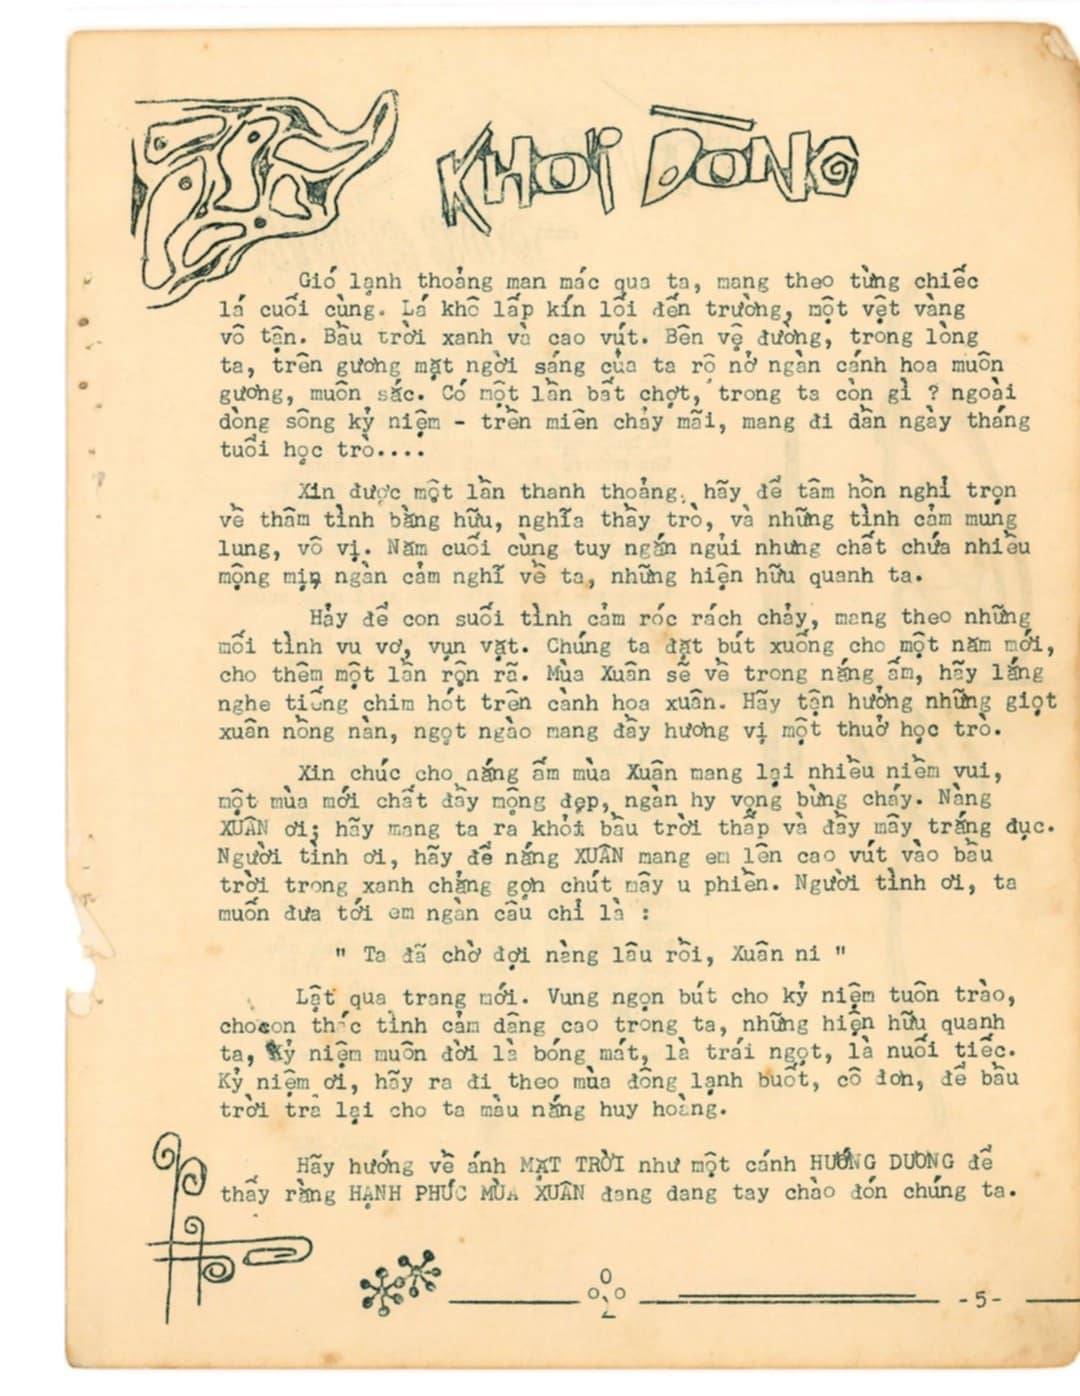 KHOI DÒNG
Gió lạnh thoảng man mác qua ta, mang theo từng chiếc
lá cuối cùng. Lá khô lấp kín lối đến trường, một vệt vàng
vô tận. Bầu trời xanh và cao vút. Bên vệ đường, trong lòng
ta, trên gương mặt ngời sáng của ta rộ nở ngàn cánh hoa muôn
gương, muôn sắc. Có một lần bất chợt, trong ta còn gì ? ngoài
dòng sông kỷ niệm - trền miên chảy mãi, mang đi dần ngày tháng
tuổi học trò....
Xin được một lần thanh thoảng, hãy để tâm hồn nghỉ trọn
về thâm tình bằng hữu, nghĩa thầy trò, và những tình cảm mung
lung, vô vị. Năm cuối cùng tuy ngắn ngủi nhưng chất chứa nhiều
mộng mịn ngàn cảm nghĩ về ta, những hiện hữu quanh ta.
Hảy để con suối tình cảm róc rách chảy, mang theo những
mối tình vu vơ, vụn vặt. Chúng ta đặt bút xuống cho một năm mới,
cho thêm một lần rộn rã. Mùa Xuân sẽ về trong nắng ấm, hãy lắng
nghe tiếng chim hót trên cành hoa xuân. Hãy tận hưởng những giọt
xuân nồng nàn, ngọt ngào mang đầy hương vị một thuở học trò.
Xin chúc cho nắng ấm mùa Xuân mang lại nhiều niềm vui,
một mùa mới chất đầy mộng đẹp, ngàn hy vọng bừng cháy. Nàng
XUÂN ơi; hãy mang ta ra khỏi bầu trời thấp và đầy mây trắng đục.
Người tình ơi, hãy để nắng XUÂN mang em lên cao vút vào bầu
trời trong xanh chẳng gợn chút mây u phiền. Người tình ơi, ta
muốn đưa tới em ngàn câu chỉ là :
" Ta đã chờ đợi nàng lâu rồi, Xuân ni "
Lật qua trang mới. Vung ngọn bút cho kỷ niệm tuôn trào,
cho con thác tình cảm dâng cao trong ta, những hiện hữu quanh
ta, Kỷ niệm muôn đời là bóng mát, là trái ngọt, là nuối tiếc.
Kỷ niệm ơi, hãy ra đi theo mùa đông lạnh buốt, cô đơn, để bầu
trời trả lại cho ta màu nắng huy hoàng.
Hãy hướng về ánh MẶT TRỜI như một cánh HƯỚNG DƯƠNG để
thấy rằng HẠNH PHÚC MÙA XUÂN đang dang tay chào đón chúng ta.
-5-